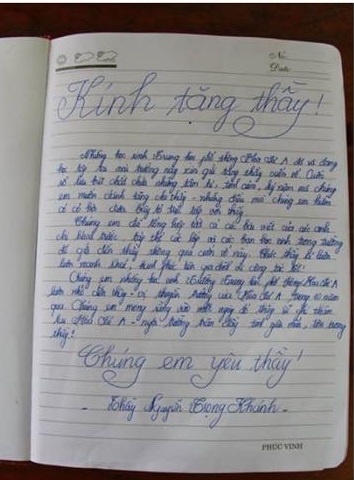 No:
Date:
Kính tặng thầy!
Những học sinh trung học phổ thông Hậu Lộc 4 đã và đang
học tập tại mái trường này xin gửi tặng thầy cuốn sổ. Cuốn
sổ lưu bút chất chứa những tâm tư, tình cảm, kỷ niệm mà chúng
em muốn dành tặng cho thầy - những điều mà chúng em hiếm
có cơ hội được bày tỏ trực tiếp với thầy.
Chúng em đã tổng hợp tất cả các bài viết của các anh
chị khóa trước, tập thể các lớp và các bạn học sinh trong trường
để gửi đến thầy thông qua cuốn sổ này. Chúc thầy sẽ luôn
luôn mạnh khỏe, hạnh phúc bên gia đình và công tác tốt!
Chúng em những học sinh trường trung học phổ thông Hậu Lộc 4
luôn nhớ đến thầy - vị thuyền trưởng của Hậu Lộc 4 trong 10 năm
qua. Chúng em mong rằng vào một ngày đó thầy sẽ về thăm
lại Hậu Lộc 4 - ngôi trường tràn đầy tình yêu mến, tôn trọng
thầy!
Chúng em yêu thầy!
- Thầy Nguyễn Trọng Khánh -
PHÚC VINH